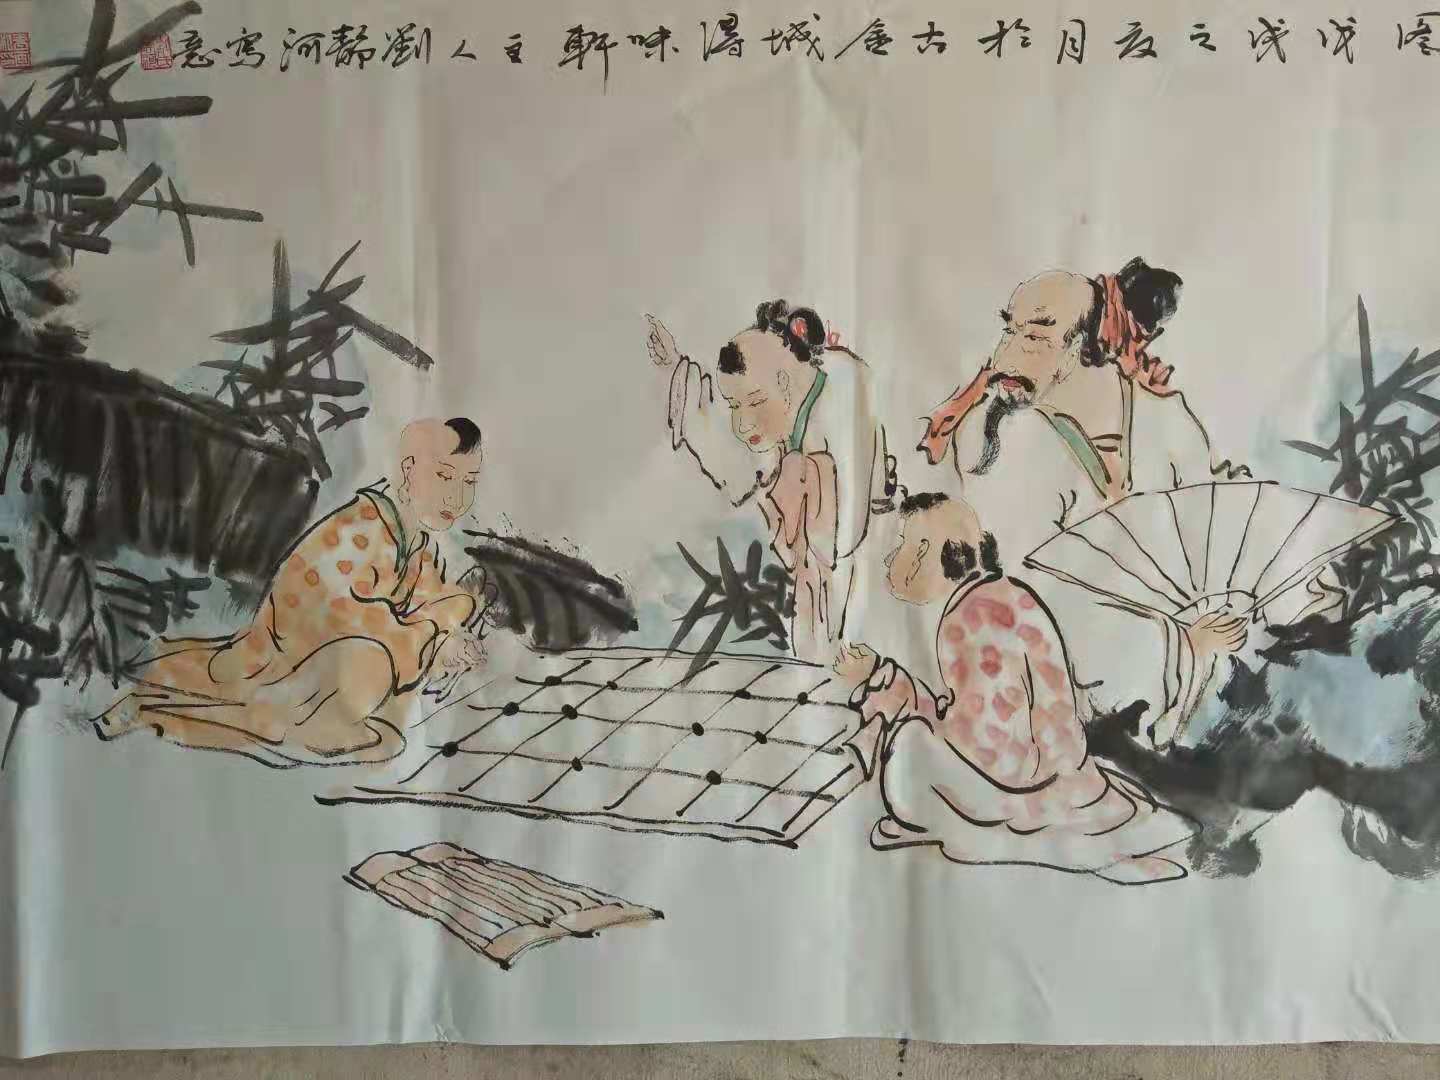 图戊戌之夏月於古金城得味軒主人劉靜河寫意